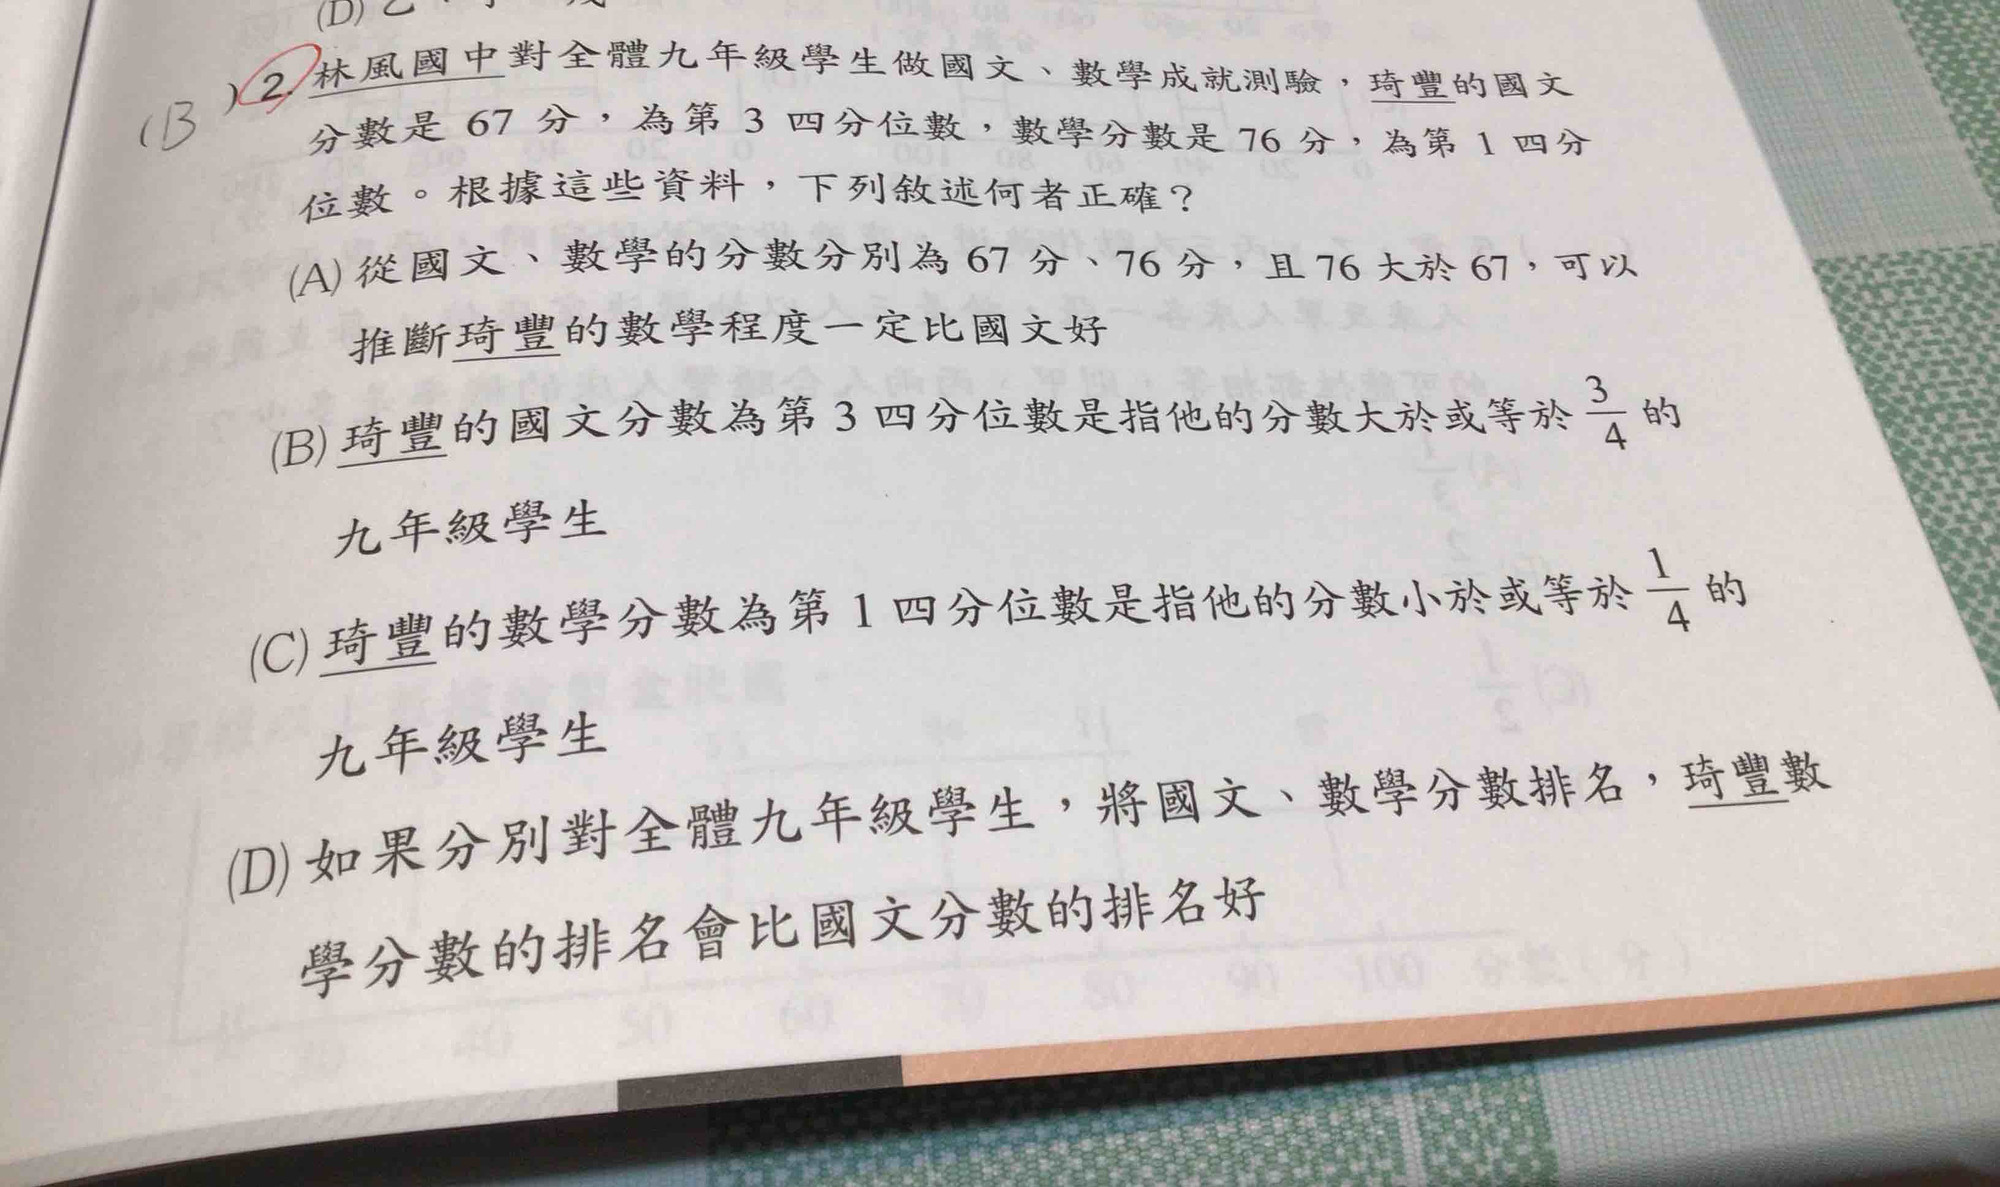 (D)乙
(B )2.林風國中對全體九年級學生做國文、數學成就測驗,琦豐的國文
分數是 67 分,為第 3 四分位數,數學分數是 76 分,為第 1 四分
位數。根據這些資料,下列敘述何者正確?
(A)從國文、數學的分數分別為 67 分、76 分,且 76 大於 67,可以
推斷琦豐的數學程度一定比國文好
(B)琦豐的國文分數為第 3 四分位數是指他的分數大於或等於 3/4 的
九年級學生
(C)琦豐的數學分數為第 1 四分位數是指他的分數小於或等於 1/4 的
九年級學生
(D)如果分別對全體九年級學生,將國文、數學分數排名,琦豐數
學分數的排名會比國文分數的排名好